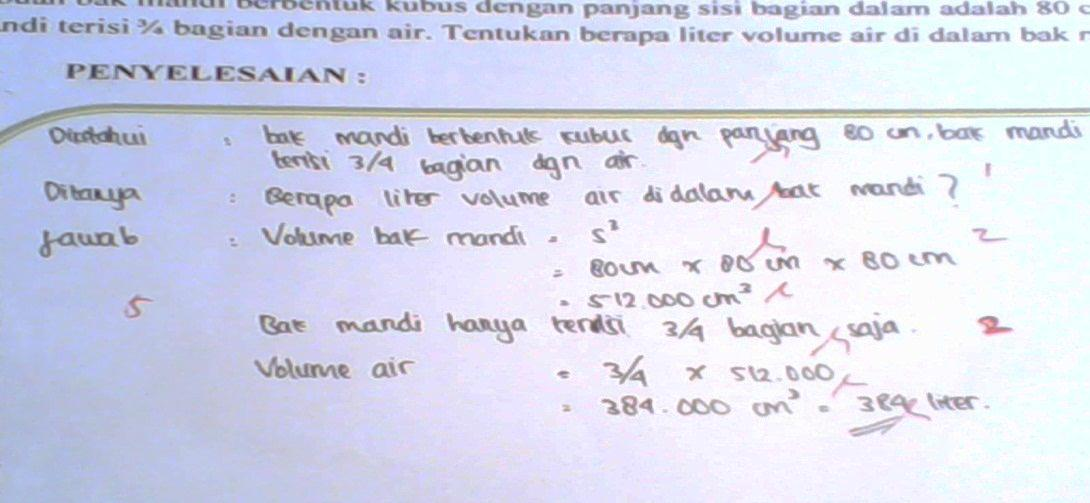 bak mandi berbentuk kubus dengan panjang sisi bagian dalam adalah 80
ndi terisi ¾ bagian dengan air. Tentukan berapa liter volume air di dalam bak
PENYELESAIAN :
Diketahui : bak mandi berbentuk kubus dgn panjang 80 cm, bak mandi
terisi 3/4 bagian dgn air.
Ditanya : Berapa liter volume air di dalam bak mandi ? 1
Jawab : Volume bak mandi = s³ 2
= 80 cm x 80 cm x 80 cm
5 = 512.000 cm³
Bak mandi hanya terisi 3/4 bagian saja. 2
Volume air = 3/4 x 512.000
= 384.000 cm³ = 384 liter.